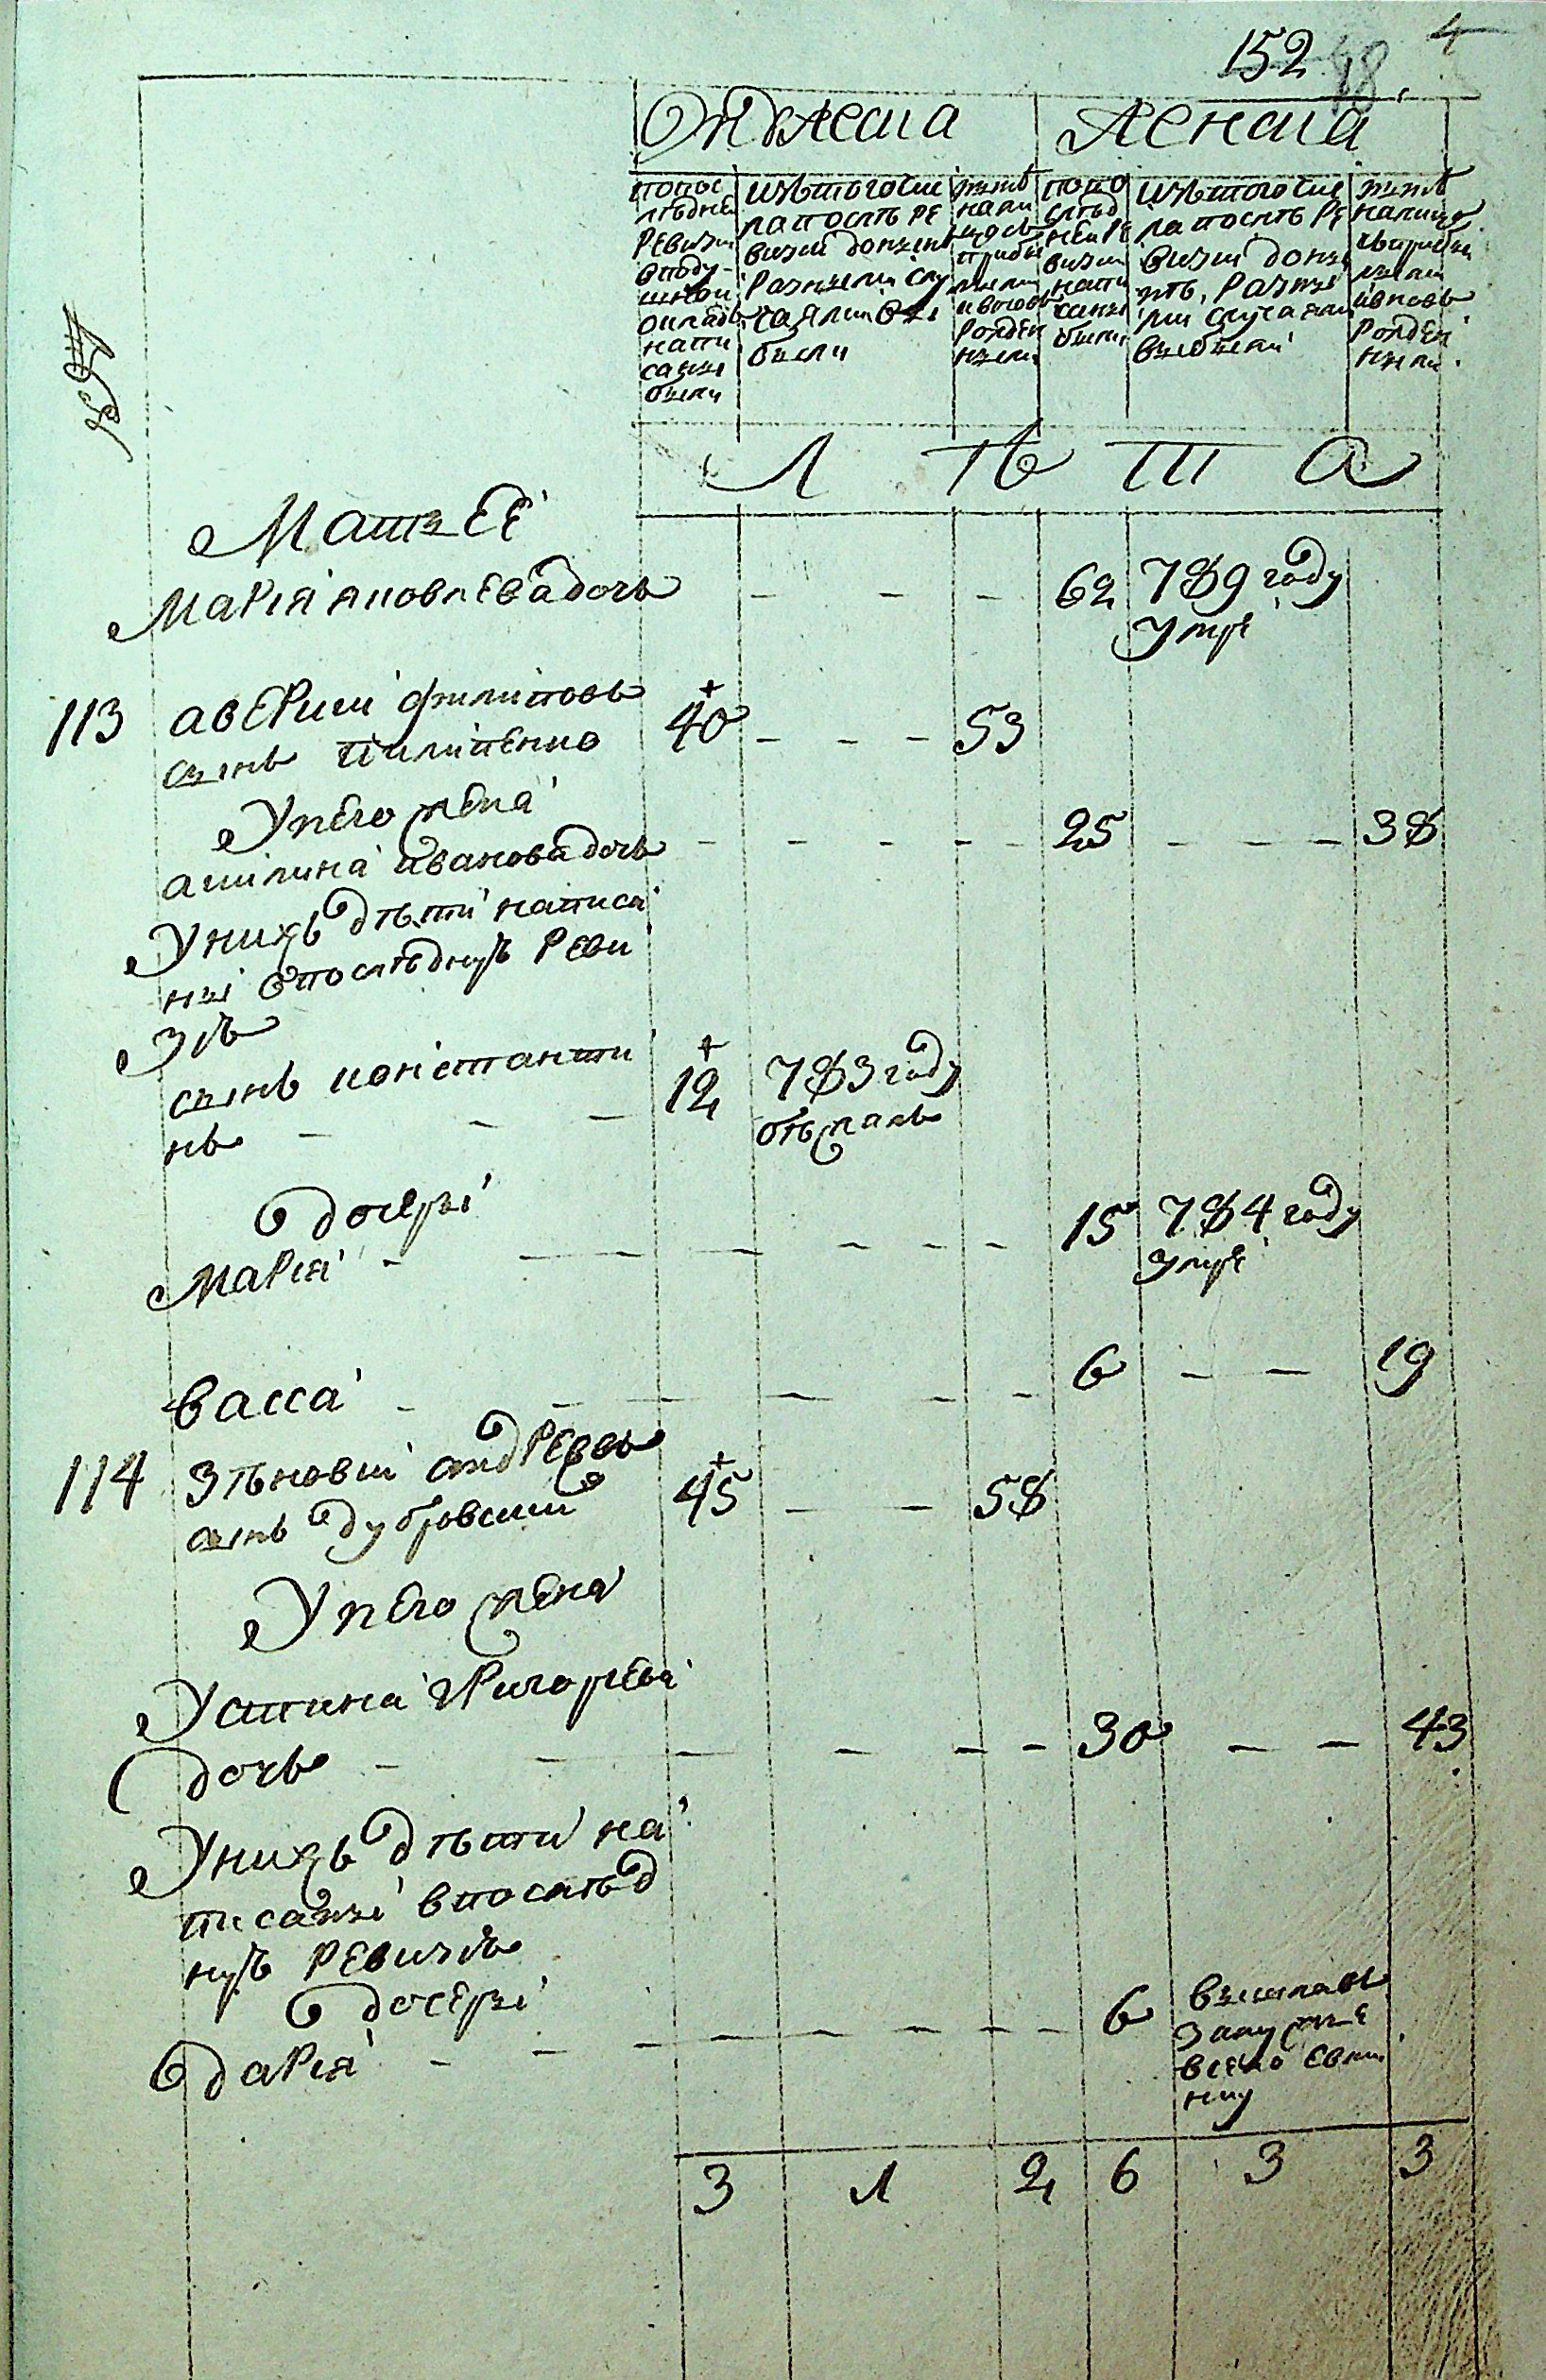 152 4
Мужеска Женска
попос
лѣдней
Ревизи
вподу-
шной
окладъ
напи
саны
были
изътогочис
ла послѣ Ре
визии донынѣ
Разными слу
чаями
были
нынѣ
нали
цо съ
прибы
лыми
и вновь
Рожден
ными
попо
слѣд
ней Ре
визии
напи
саны
были
изътого чис
ла послѣ Ре
визии доны
нѣ, Разны
ми случаями
выбыли
нынѣ
налицо
съприбы
лыми
ивновь
Рожден
ными.
Л ѣ т а
Матъ Ее
Мариа яковлева дочь - - - 62 789 году
умре
113 аверкии филиповъ 40 - - - 53
сынъ пилипенко
Унего жена
акилина иванова дочь - - - - - 25 - - - 38
Унихъ дѣти написа
ны впослѣднуѣ Реви
зіѣ
сынъ константи 12 783 году
нъ - - - бѣжалъ
дочеры
Мариа - - - - - - - 15 784 году
умре
васса - - - - - - 6 - - 19
114 Зѣновии андреевъ 45 - - 58
сынъ дубровскии
Унего жена
Устина Григорева
дочь - - - - - - 30 - - 43
Унихъ дѣти на
писаны впослѣд
нуѣ Ревизіѣ
дочеры
дариа - - - - - - - - 6
вышла въ
замужже
всело
3 1 2 6 3 3